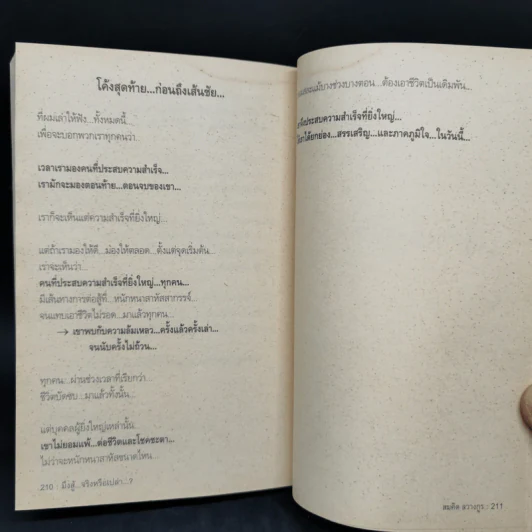 โค้งสุดท้าย...ก่อนถึงเส้นชัย...
ที่ผมเล่าให้ฟัง...ทั้งหมดนี้
เพื่อจะบอกพวกเราทุกคนว่า
เวลาเรามองคนที่ประสบความสำเร็จ...
เรามักจะมองตอนท้าย...ตอนจบของเขา...
เราก็จะเห็นแต่ความสำเร็จที่ยิ่งใหญ่...
แต่ถ้าเรามองให้ดี...มองให้ตลอด...ตั้งแต่จุดเริ่มต้น...
เราจะเห็นว่า...
คนที่ประสบความสำเร็จที่ยิ่งใหญ่...ทุกคน...
มีเส้นทางการต่อสู้ที่...หนักหนาสาหัสสากรรจ์...
จนแทบเอาชีวิตไม่รอด...มาแล้วทุกคน...
→ เขาพบกับความล้มเหลว...ครั้งแล้วครั้งเล่า...
จนนับครั้งไม่ถ้วน...
ทุกคน...ผ่านช่วงเวลาที่เรียกว่า
ชีวิตบัดซบ...มาแล้วทั้งนั้น...
แต่บุคคลผู้ยิ่งใหญ่เหล่านั้น...
เขาไม่ยอมแพ้...ต่อชีวิตและโชคชะตา...
ไม่ว่าจะหนักหนาสาหัสขนาดไหน...
210 : มึงสู้...จริงหรือเปล่า...?
แม้บางช่วงบางตอน...ต้องเอาชีวิตเป็นเดิมพัน...
ประสบความสำเร็จที่ยิ่งใหญ่...
ได้ยกย่อง...สรรเสริญ...และภาคภูมิใจ...ในวันนี้...
สมคิด ลวางกูร : 211